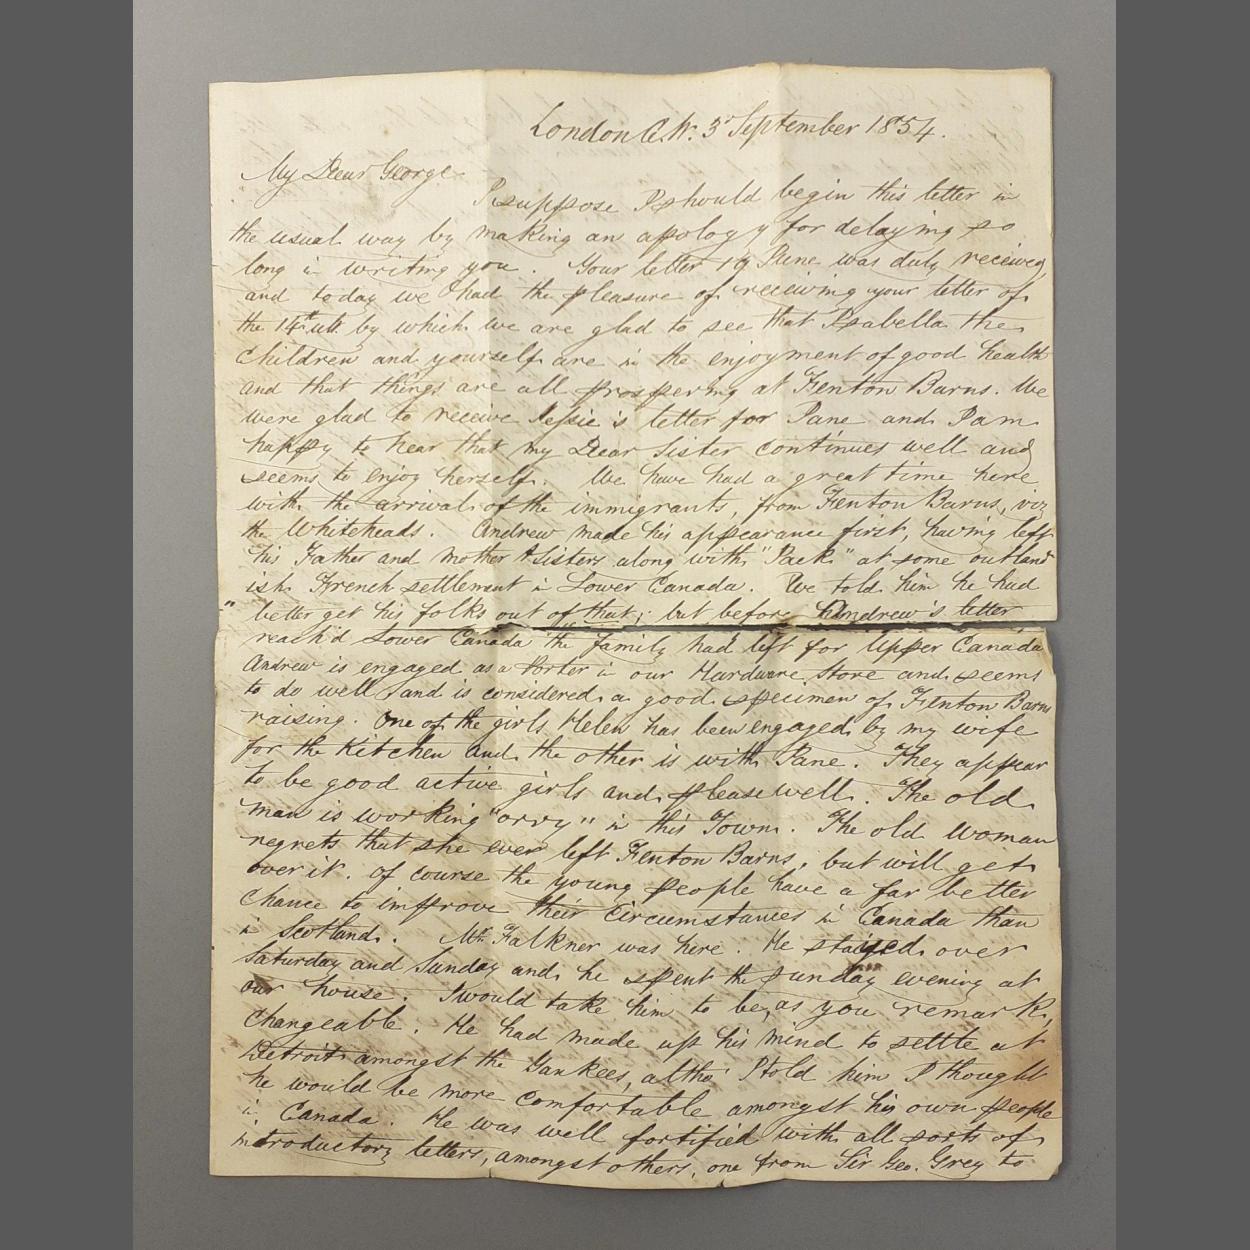 London C.W. 3d September 1854.
My Dear George
I suppose I should begin this letter in
the usual way by making an apology for delaying so
long in writing you. Your letter 19 June was duly received
and today we had the pleasure of receiving your letter of
the 14th ult by which we are glad to see that Isabella the
Children and yourself are in the enjoyment of good health
and that things are all prospering at Fenton Barns. We
were glad to receive Jessie's letter for Jane and I am
happy to hear that my Dear Sister continues well and
seems to enjoy herself. We have had a great time here
with the arrival of the immigrants, from Fenton Barns, viz
the Whiteheads. Andrew made his appearance first, having left
his Father and mother & sisters along with "Jack" at some outland
ish French settlement in Lower Canada. We told him he had
better get his folks out of that; but before Andrew's letter
reach'd Lower Canada the family had left for Upper Canada
Andrew is engaged as a Porter in our Hardware Store and seems
to do well and is considered a good specimen of Fenton Barns
raising. One of the girls Helen has been engaged by my wife
for the Kitchen and the other is with Jane. They appear
to be good active girls and please well. The old
man is working "orry" in this Town. The old woman
regrets that she ever left Fenton Barns, but will get
over it. Of course the young people have a far better
Chance to improve their Circumstances in Canada than
in Scotland. Mr. Falkner was here. He stayed over
Saturday and Sunday and he spent the Sunday evening at
our house. I would take him to be, as you remark,
Changeable. He had made up his mind to settle at
Detroit amongst the Yankees, altho' I told him I thought
he would be more comfortable amongst his own people
in Canada. He was well fortified with all sorts of
introductory letters, amongst others, one from Sir Geo. Grey to